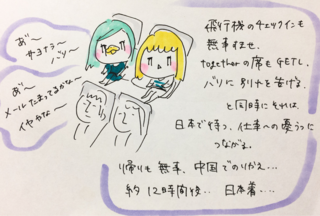 あ゛〜
サヨナラ〜
バリ〜
あ〜
メールたまってるかな〜
イヤやな〜
飛行機のチェックインも
無事すませ、
togetherの席もGETし、
バリに別れを告げる。
と同時にそれは、
日本で待つ、仕事への憂うつに
つながる。
帰りも無事、中国でのりかえ…
約12時間後… 日本着…